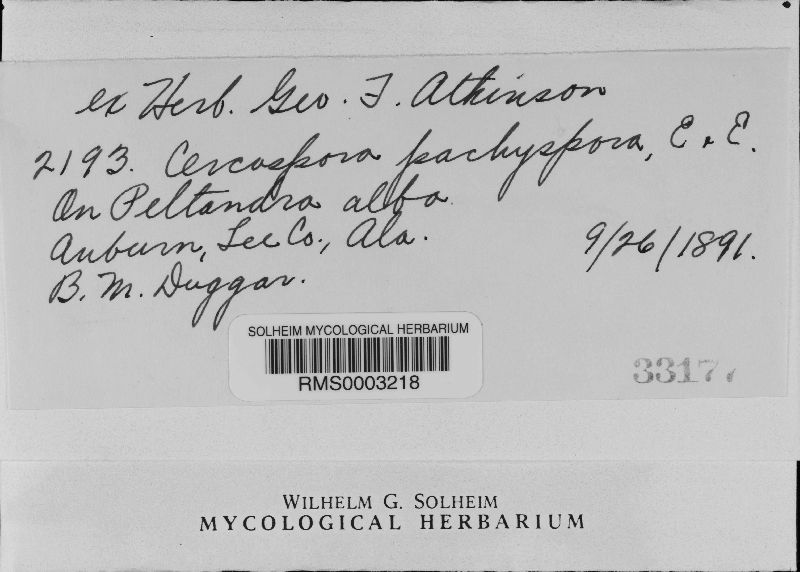 ex Herb. Geo. F. Atkinson
2193. Cercospora pachyspora, E. & E.
On Peltandra alba
Auburn, Lee Co., Ala.
9/26/1891.
B. M. Duggar.
SOLHEIM MYCOLOGICAL HERBARIUM
RMS0003218
33177
WILHELM G. SOLHEIM
MYCOLOGICAL HERBARIUM